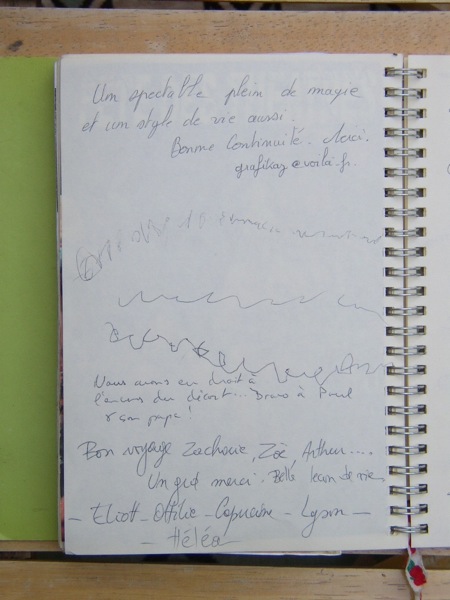 Un spectacle plein de magie
et un style de vie aussi.
Bonne Continuité. Merci.
grafikaz@voila.fr.
Nous avons eu droit à
l'envers du décort... Bravo à Paul
& son papa!
Bon voyage Zacharie, Zoë, Arthur....
Un grd merci. Belle leçon de vie
- Eliott - Ottilie - Capucine - Lyson -
- Héléa